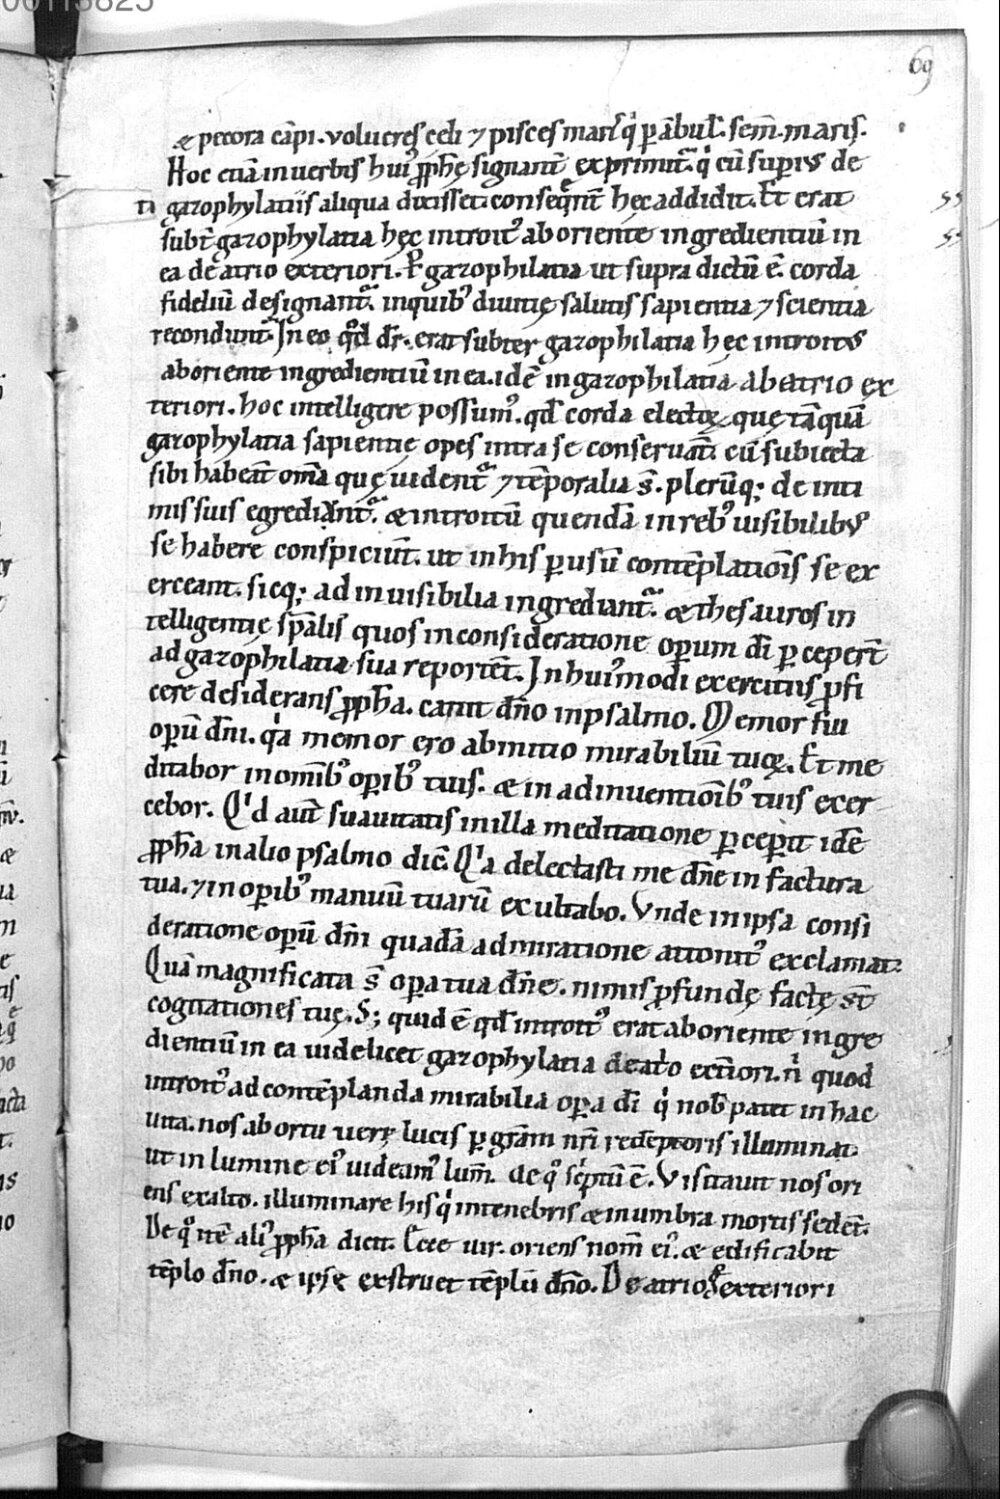 00113825
69
& pecora cāpi. volucres cęli ⁊ pisces maris q̇ ꝑābul̄. sem̄. maris.
Hoc etiā in verbis hui᷒ ꝓph̄ę signant̄ exprimit᷑. q̇ cū superi᷒ de
gazophylatiis aliqua dixisset. consequent̄ hęc addidit. Et erat
subt̄ gazophylatia hęc introit᷒ ab oriente ingredientiū in
ea de atrio exteriori. Per gazophilatia ut supra dictū ē. corda
fideliū designant᷑. in quib᷒ diuitię salutis sapientia ⁊ scientia
recondunt᷑. In eo qđ dr̄. erat subter gazophilatia hęc introitus
ab oriente ingredientiū in ea. id ē in gazophilatia ab atrio ex
teriori. hoc intelligere possum᷒. qđ corda electoꝝ. quę tāquā
gazophylatia sapientię opes intra se conseruāt. cū subiecta
sibi habeāt om̄a quę uident᷑ ⁊ tēporalia s̄. plerūq; de inti
mis suis egrediunt᷑. & introitū quendā in reb᷒ uisibilib᷒
se habere conspiciūt. ut in his ꝑ usū contēplatiōis se ex
erceant. sicq; ad inuisibilia ingrediant᷑. & thesauros in
telligentię sp̄alis quos in consideratione operum dī ꝑceper̄t
ad gazophilatia sua reportēt. In hui᷒modi exercitiis ꝓfi
cere desiderans ꝓph̄a. canit dn̄o in psalmo. Memor fui
operū dn̄i. qa memor ero ab initio mirabiliū tuoꝝ. Et me
ditabor in om̄ib᷒ operib᷒ tuis. & in adinuentiōib᷒ tuis exer
cebor. Qid aut̄ suauitatis in illa meditatione ꝑceperit idē
ꝓph̄a in alio psalmo dic̄. Qia delectasti me dn̄e in factura
tua. ⁊ in operib᷒ manuū tuarū exultabo. Vnde in ipsa consi
deratione operū dn̄i quadā admiratione attonit᷒ exclamat.
Quā magnificata s̄ opera tua dn̄e. nimis ꝓfundę factę st̄
cogitationes tuę. S; quid ē qđ introit᷒ erat ab oriente ingre
dientiū in ea uidelicet gazophylatia de atrio ext̄iori. ni quod
introit᷒ ad contēplanda mirabilia opera dī qi nob̄ patet in hac
uita. nos ab ortu uerę lucis ꝑ grām nr̄i redēptoris illuminat.
ut in lumine ei᷒ uideam᷒ lum̄. de qo sc̄ptū ē. Visitauit nos ori
ens ex alto. illuminare his qi in tenebris & in umbra mortis sedēt.
De qo itē ali᷒ ꝓph̄a dicit. Ecce uir. oriens nom̄ ei᷒. & edificabit
tēplo dn̄o. & ipse exstruet tēplū dn̄o. De atrio gͦ exteriori